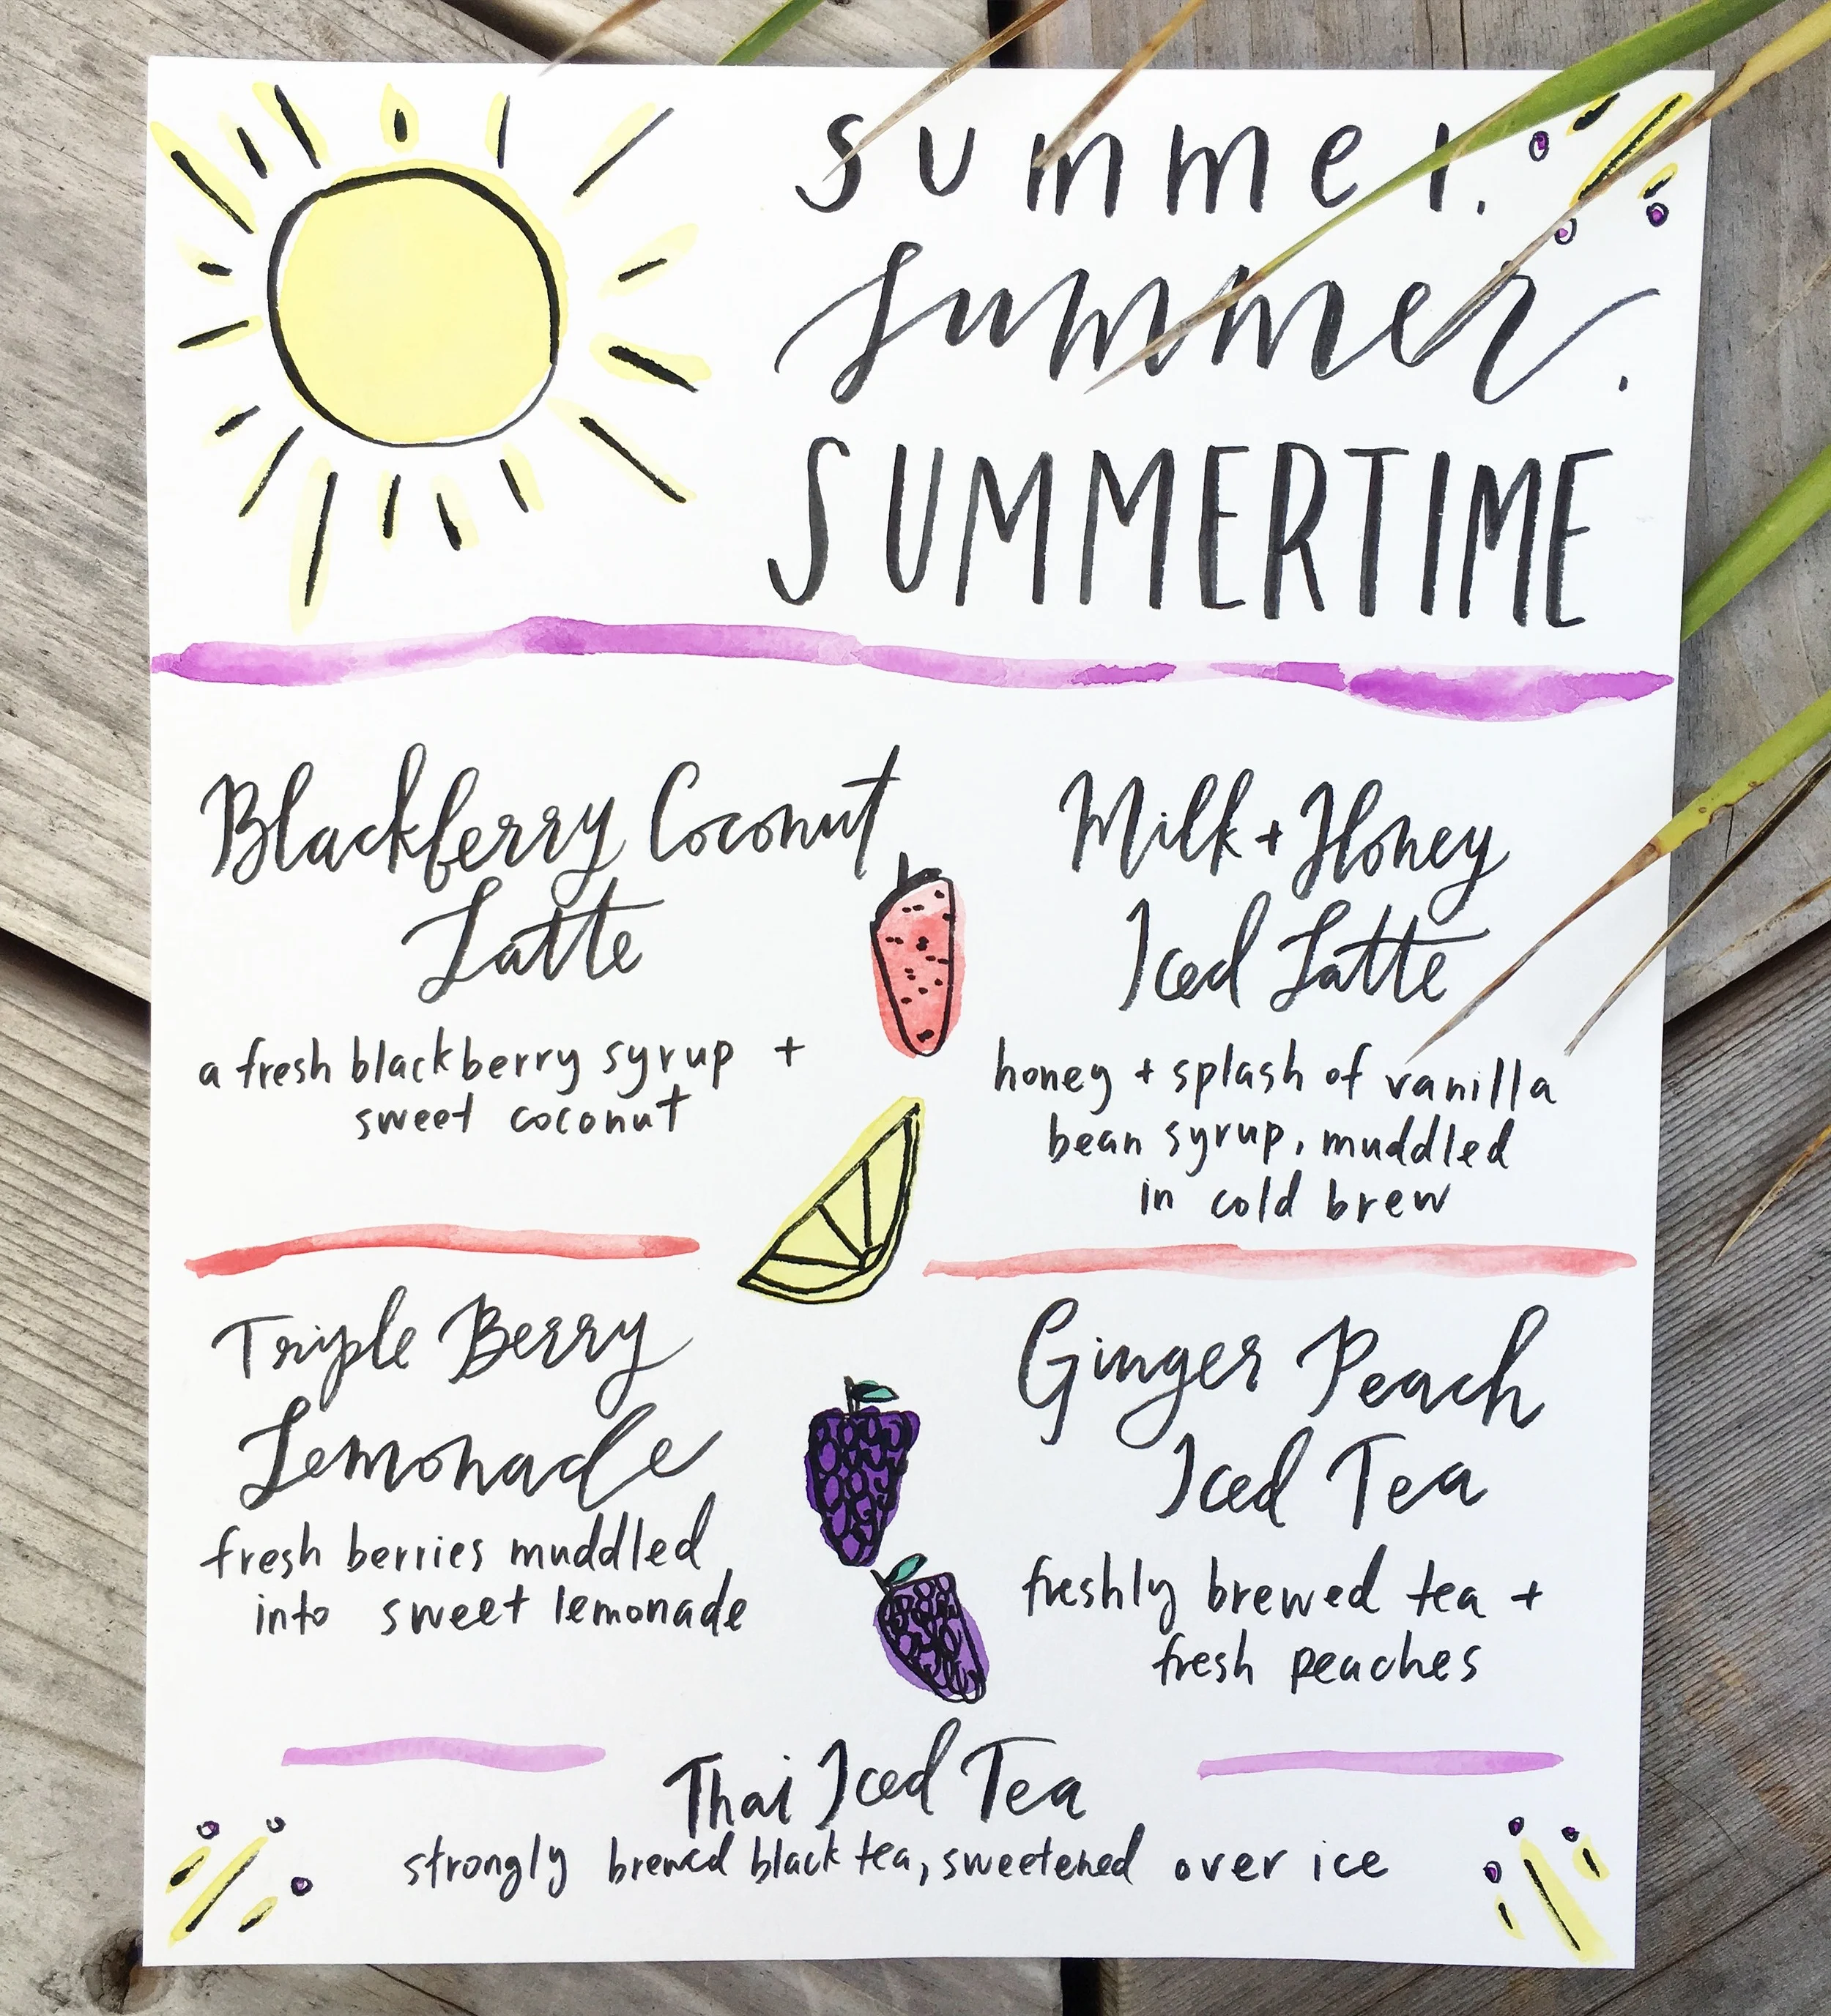 summer.
summer.
SUMMERTIME
Blackberry Coconut
Latte
a fresh blackberry syrup +
sweet coconut
Milk + Honey
Iced Latte
honey + splash of vanilla
bean syrup, muddled
in cold brew
Triple Berry
Lemonade
fresh berries muddled
into sweet lemonade
Ginger Peach
Iced Tea
freshly brewed tea +
fresh peaches
Thai Iced Tea
strongly brewed black tea, sweetened over ice